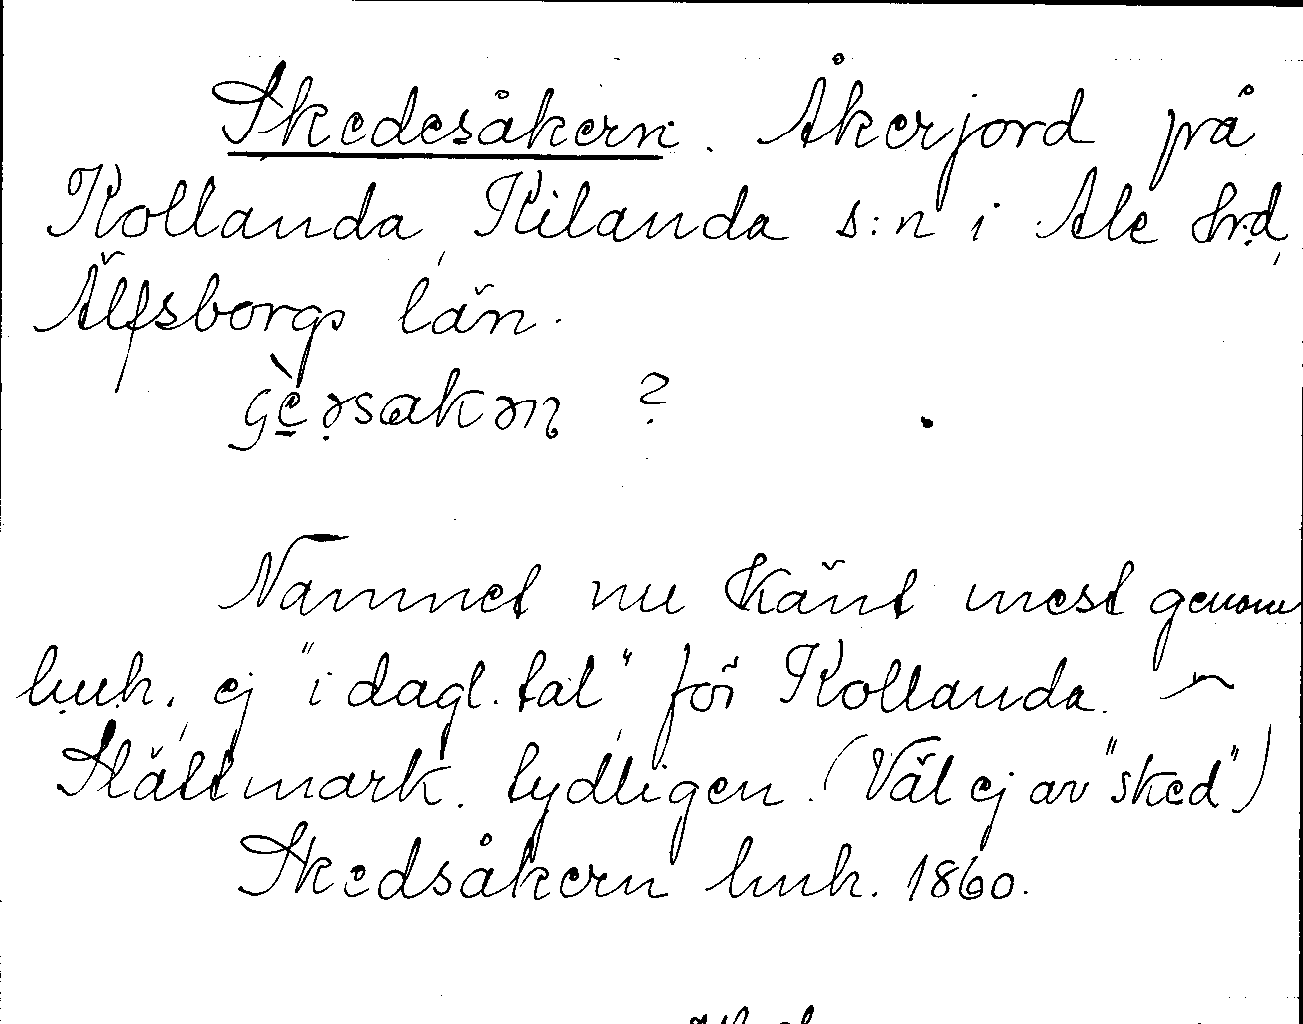 Skedesåkern. Åkerjord på
Kollanda, Kilanda s:n i Ale hrd,
Älfsborgs län.
?
Namnet nu känt mest genom
lmh., ej "i dagl. tal" för Kollanda.
Slättmark, tydligen. (Väl ej av "sked")
Skedsåkern lmh. 1860.